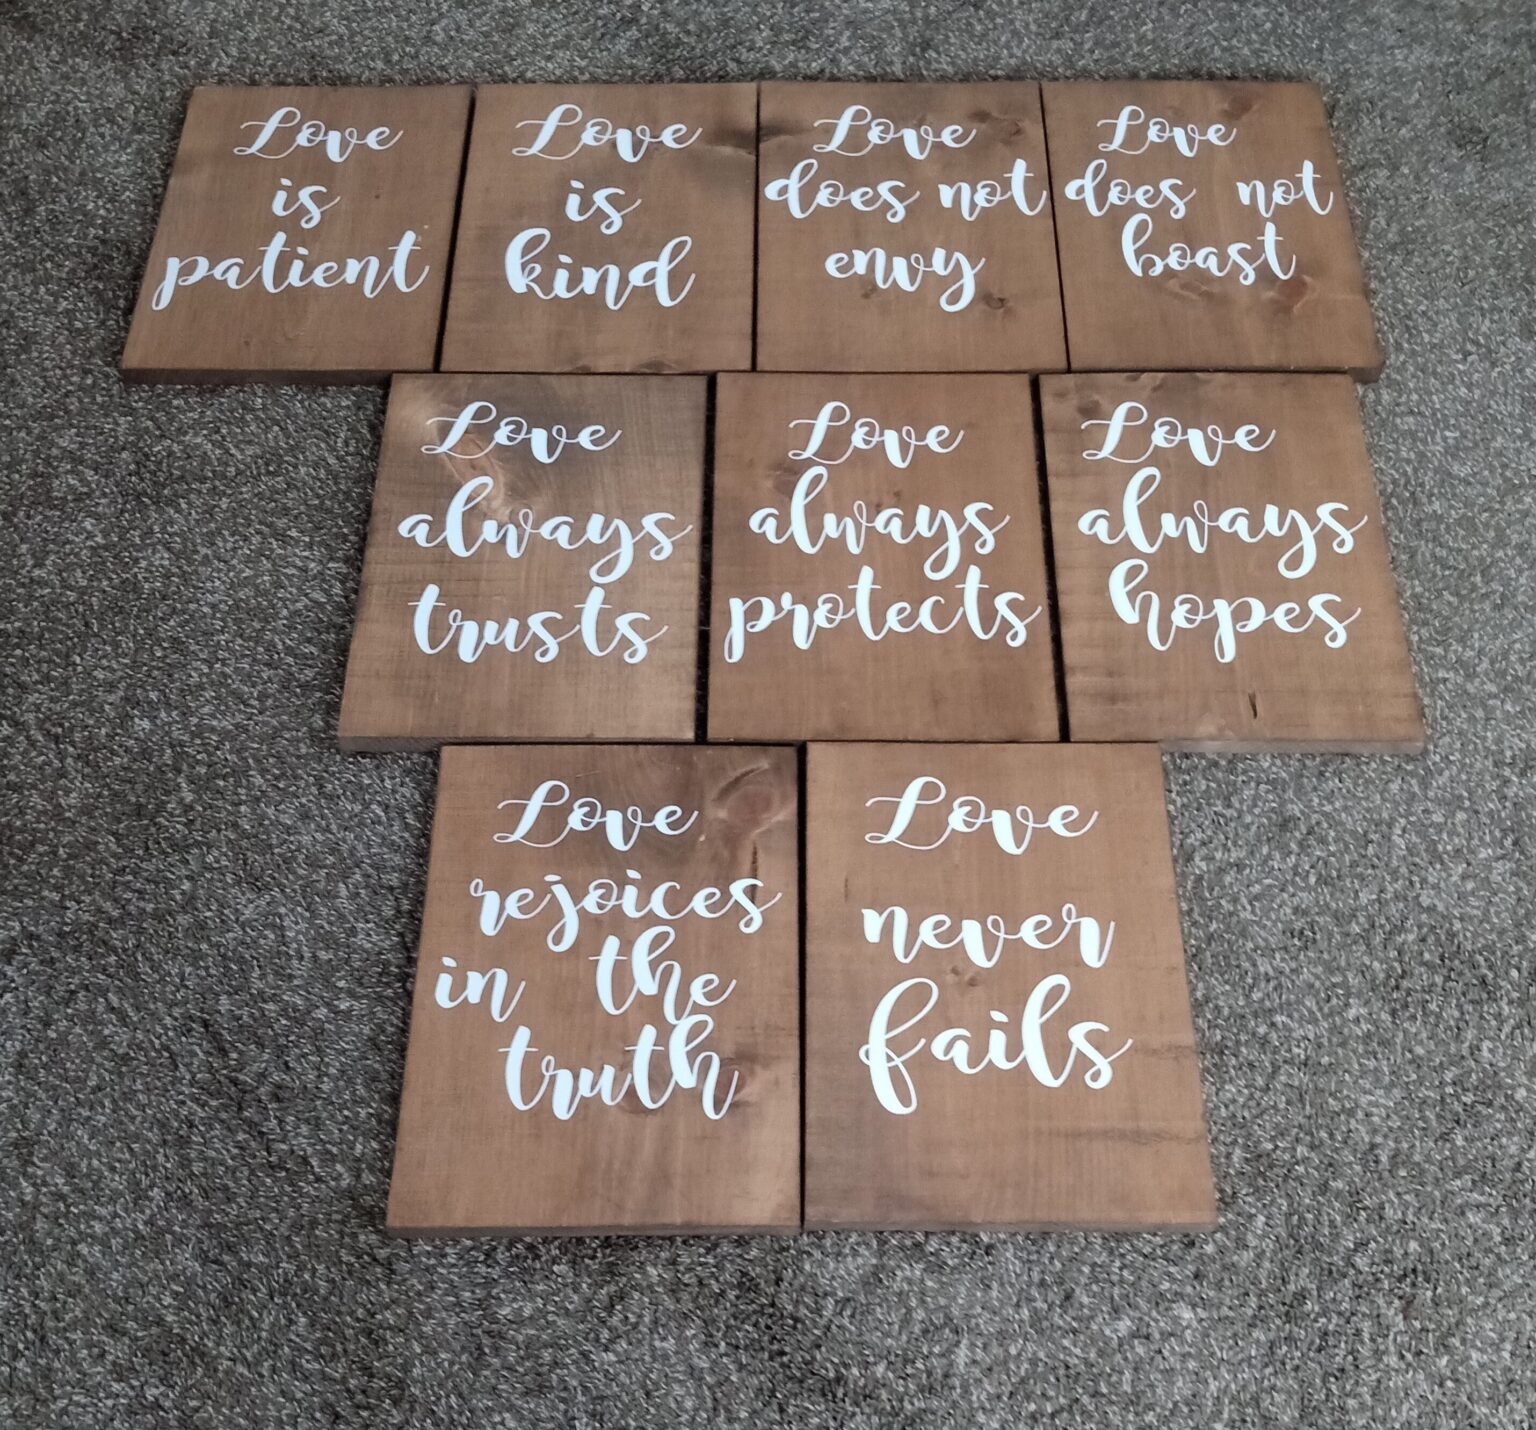 Love
is
patient
Love
is
kind
Love
does not
envy
Love
does not
boast
Love
always
trusts
Love
always
protects
Love
always
hopes
Love
rejoices
in the
truth
Love
never
fails